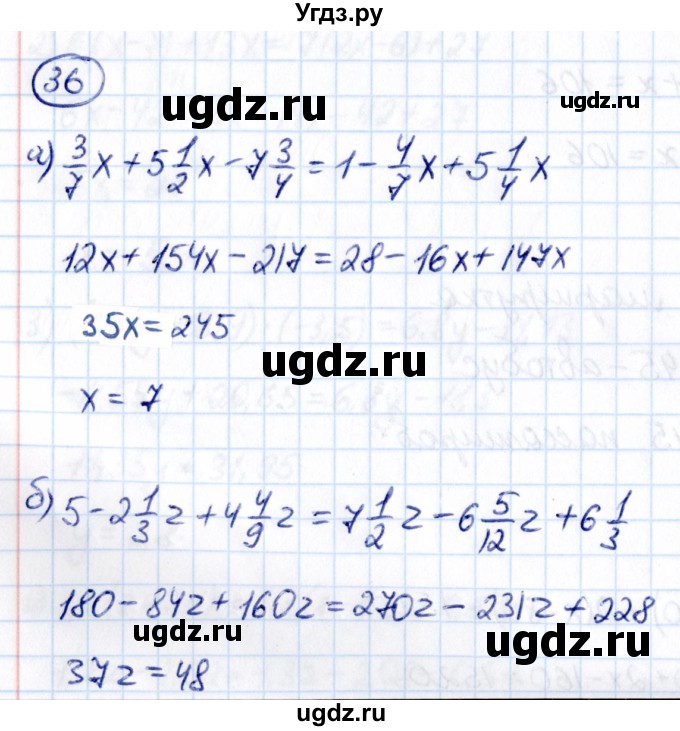 Угдз.ру
36
ugdz.ru
а) 3/7 x + 5 1/2 x - 7 3/4 = 1 - 4/7 x + 5 1/4 x
12x + 154x - 217 = 28 - 16x + 147x
35x = 245
ugdz.ru
x = 7
ugdz.ru
б) 5 - 2 1/3 z + 4 4/9 z = 7 1/2 z - 6 5/12 z + 6 1/3
180 - 84z + 160z = 270z - 231z + 228
ugdz.ru
ugdz.ru
37z = 48
ugdz.ru